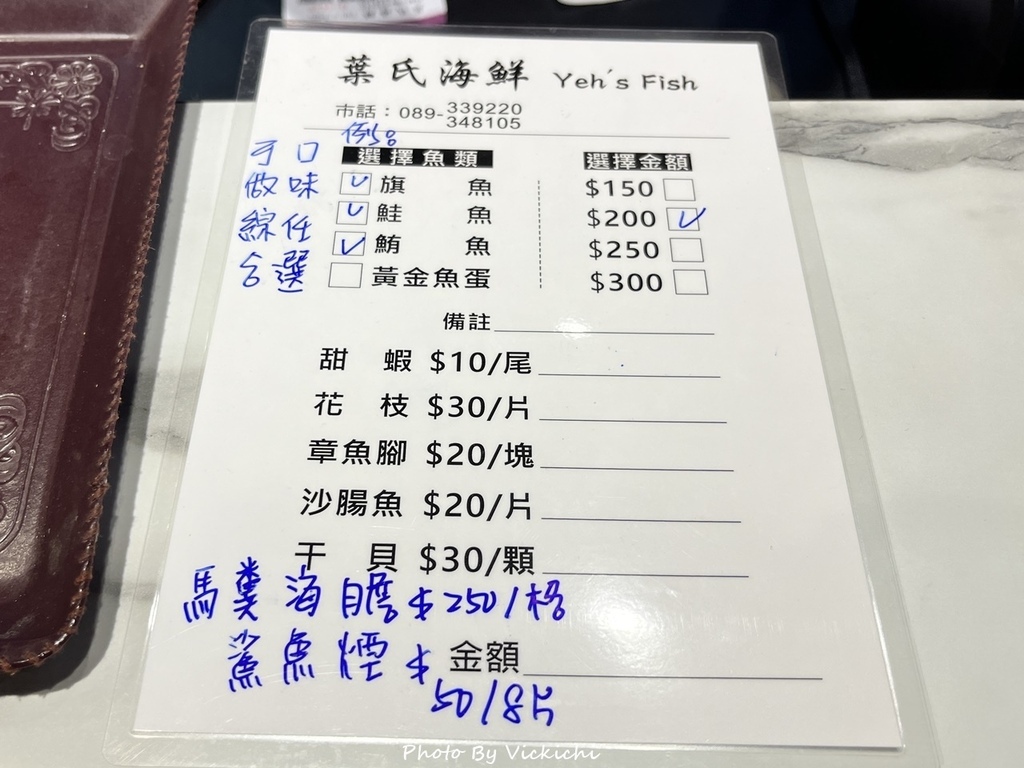 葉氏海鮮 Yeh's Fish
市話：089-339220
348105
例50
可做綜合
口味任選
選擇魚類
✓旗魚
✓鮭魚
✓鮪魚
黃金魚蛋
選擇金額
$150
$200 ✓
$250
$300
備註
甜蝦 $10/尾
花枝 $30/片
章魚腳 $20/塊
沙腸魚 $20/片
干貝 $30/顆
馬糞海膽$250/格
鯊魚煙$50/8片
金額
Photo By Vickichi